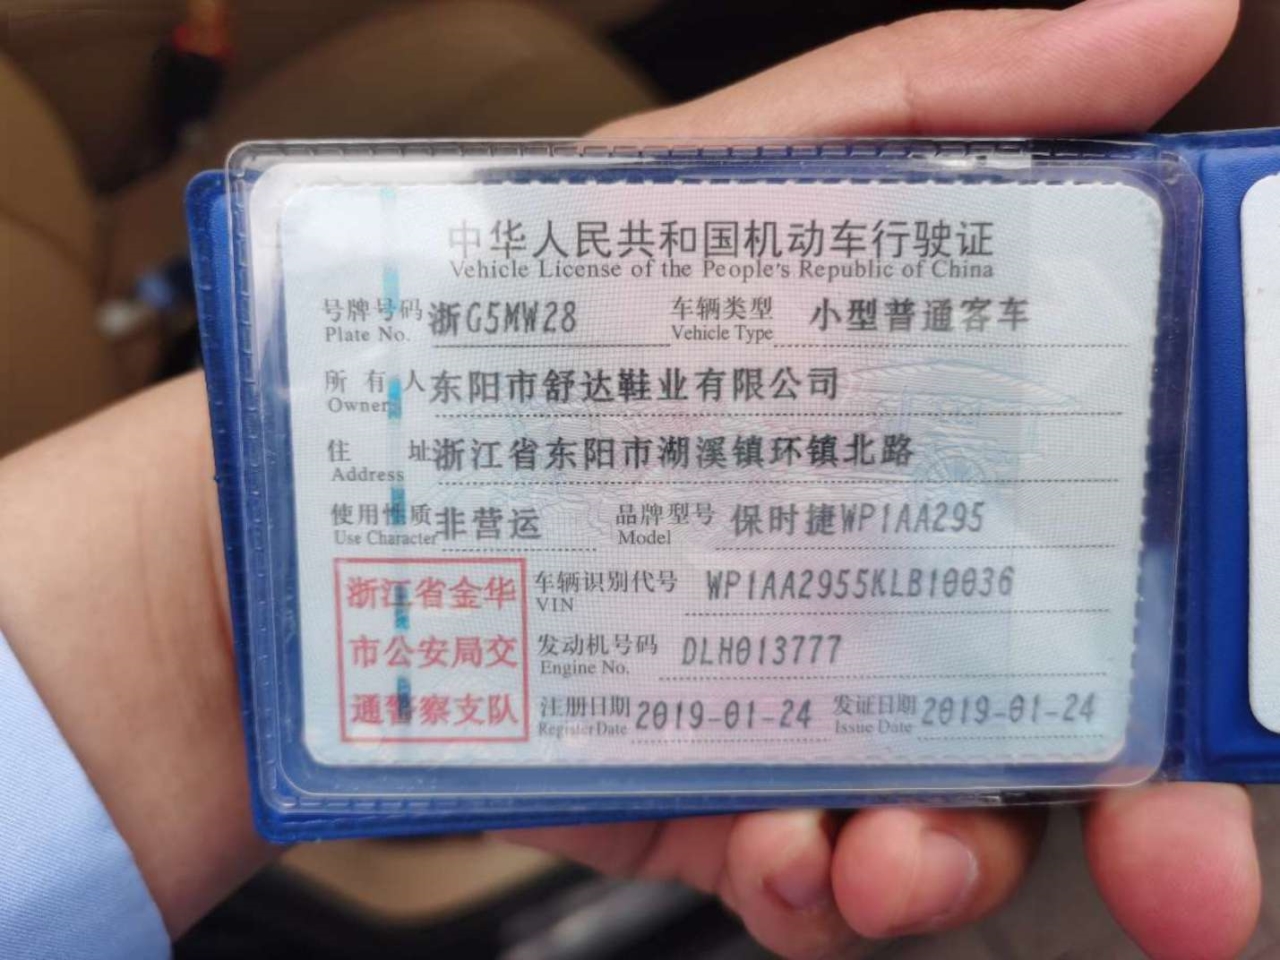 中华人民共和国机动车行驶证
Vehicle License of the People's Republic of China
号牌号码 浙G5MW28 车辆类型 小型普通客车
Plate No. Vehicle Type
所有人 东阳市舒达鞋业有限公司
Owner
住址 浙江省东阳市湖溪镇环镇北路
Address
使用性质 非营运 品牌型号 保时捷WP1AA295
Use Character Model
浙江省金华 车辆识别代号 WP1AA2955KLB10036
VIN
市公安局交 发动机号码 DLH013777
Engine No.
通警察支队 注册日期 2019-01-24 发证日期 2019-01-24
Register Date Issue Date